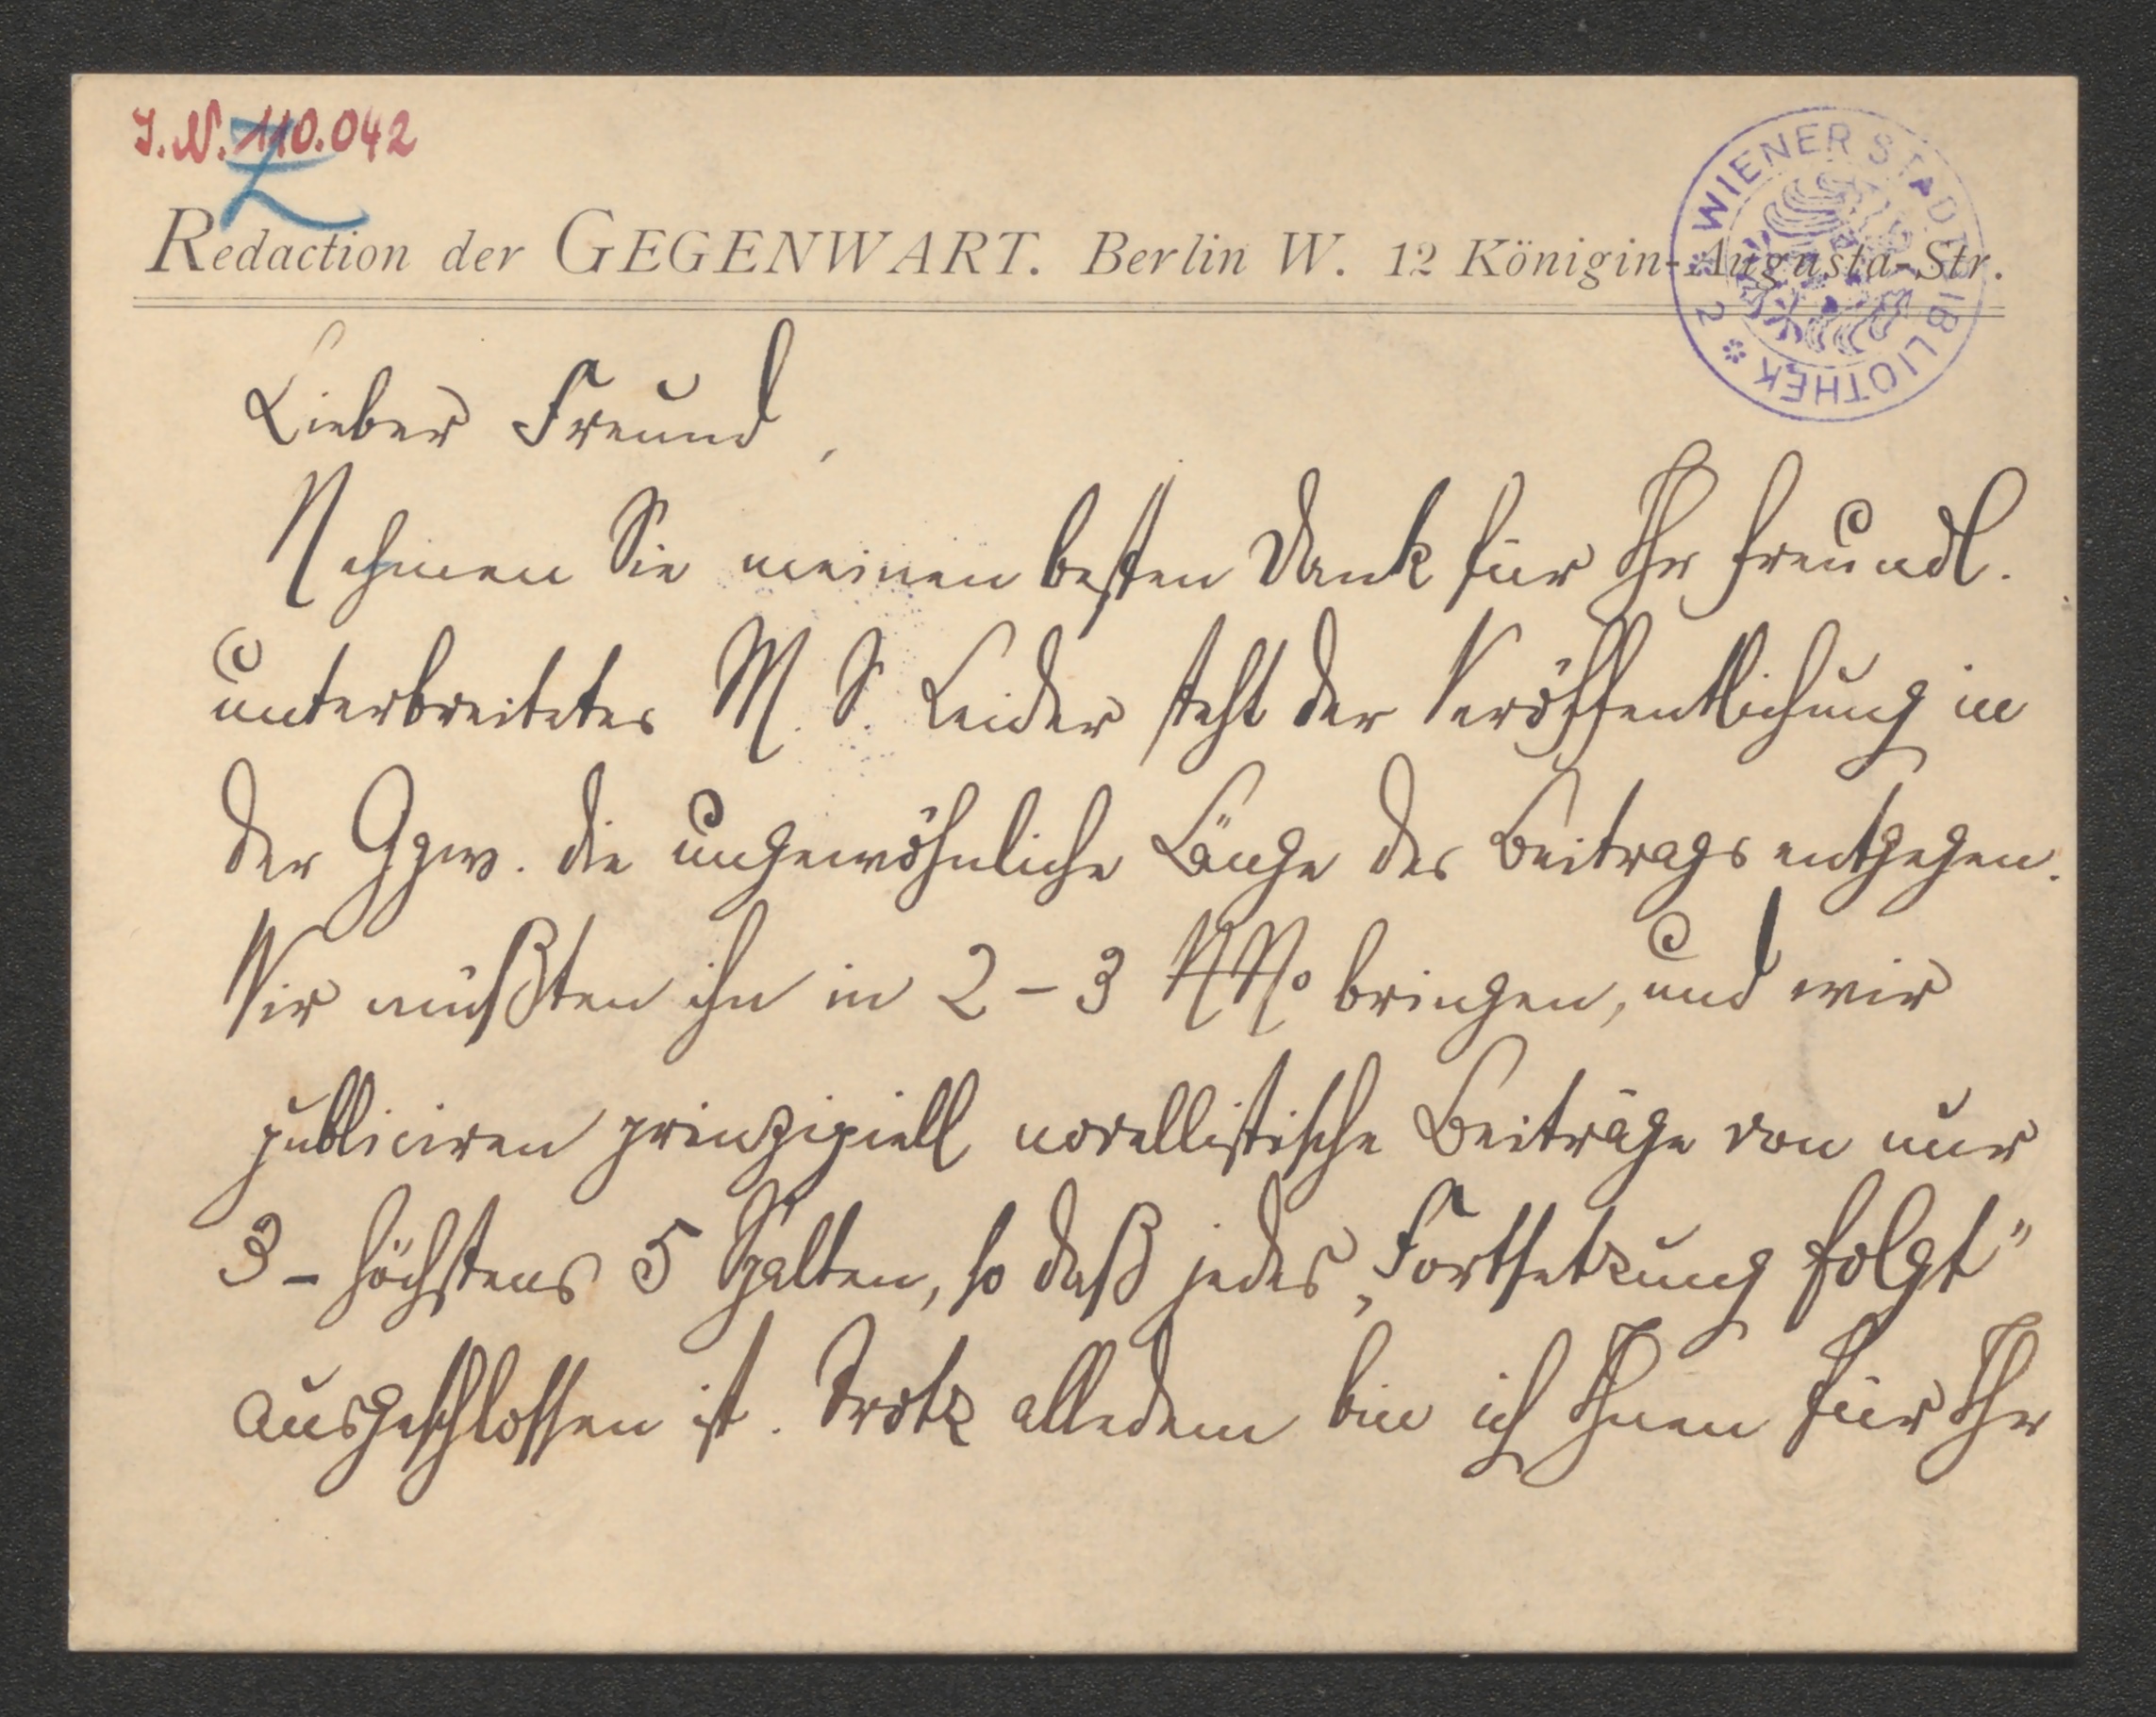 J.N. 110.042
Z
Redaction der GEGENWART. Berlin W. 12 Königin-Augusta-Str.
* WIENER STADTBIBLIOTHEK * 2
Lieber Freund,
Nehmen Sie meinen besten Dank für Ihr freundl.
unterbreitetes M. S. Leider steht der Veröffentlichung in
der Ggw. die ungewöhnliche Länge des Beitrags entgegen.
Wir müßten ihn in 2–3 NNo bringen, und wir
publiciren prinzipiell novellistische Beiträge von nur
3– höchstens 5 Spalten, so daß jedes „Fortsetzung folgt"
ausgeschlossen ist. Trotz alledem bin ich Ihnen für Ihr